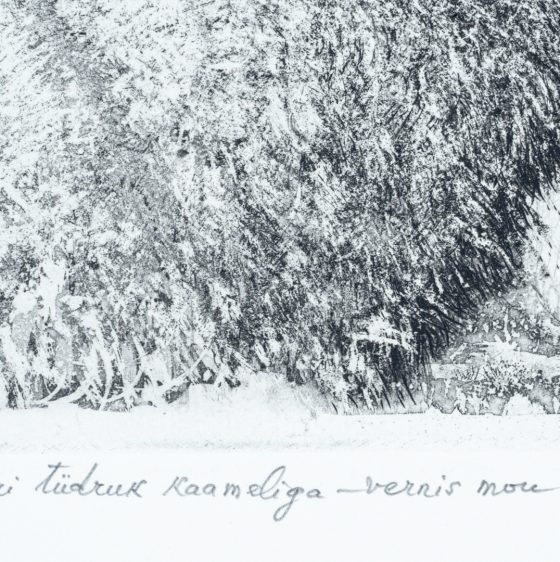 tüdruk kaameliga – vernis mou